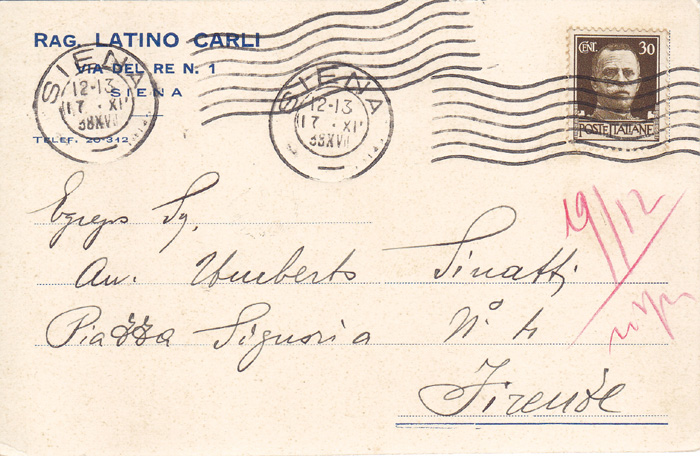 RAG. LATINO CARLI
VIA DEL RE N. 1
SIENA
TELEF. 20-312
SIENA
12-13
17 . XI
38XVII
SIENA
12-13
17 . XI
38XVII
CENT. 30
POSTE ITALIANE
Egregs Sg.
Av. Umberto Sinatti
Piazza Signoria N° 4
Firenze
19/12